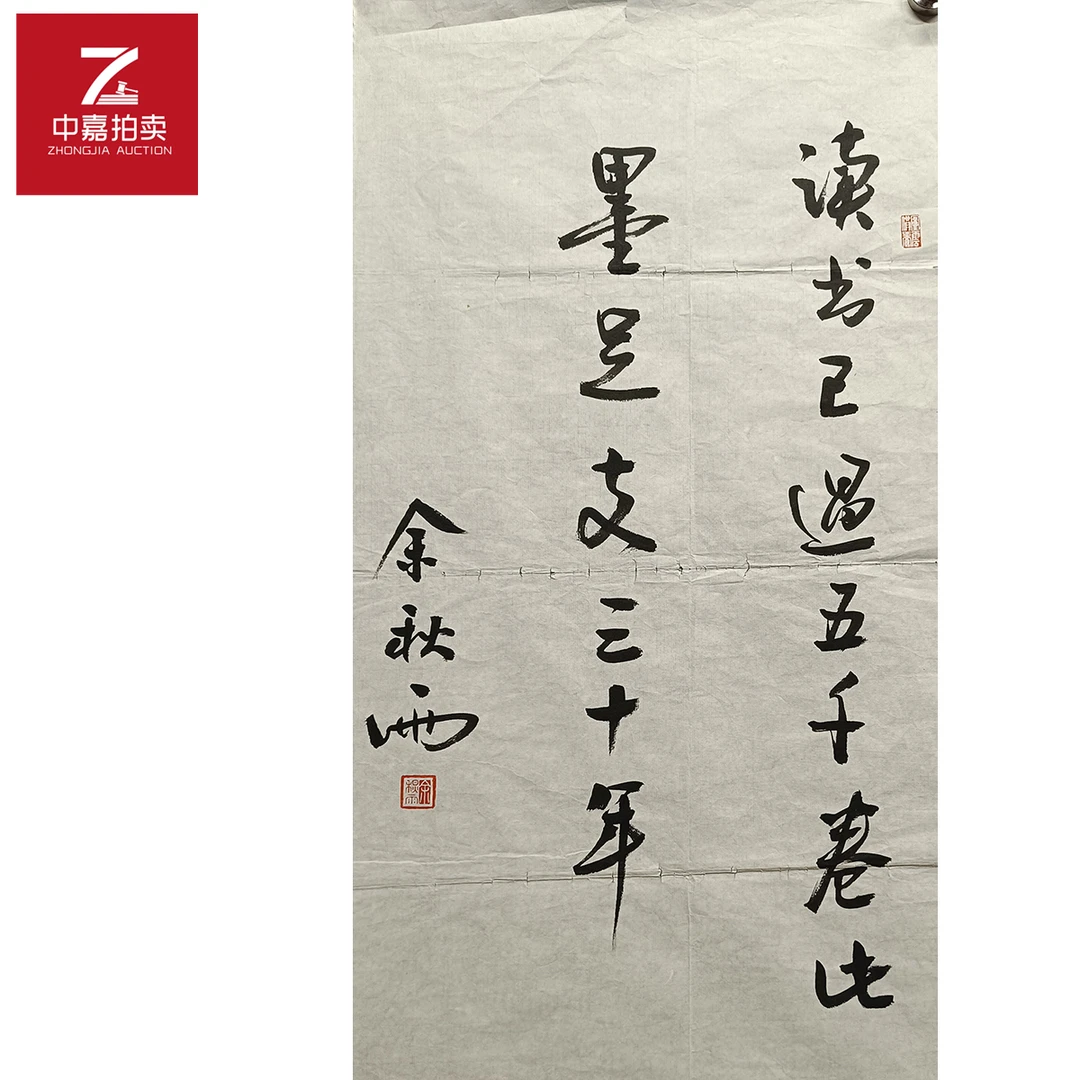 中嘉拍卖
ZHONGJIA AUCTION
读书已過五千卷此
墨足支三十年
余秋雨
余秋雨